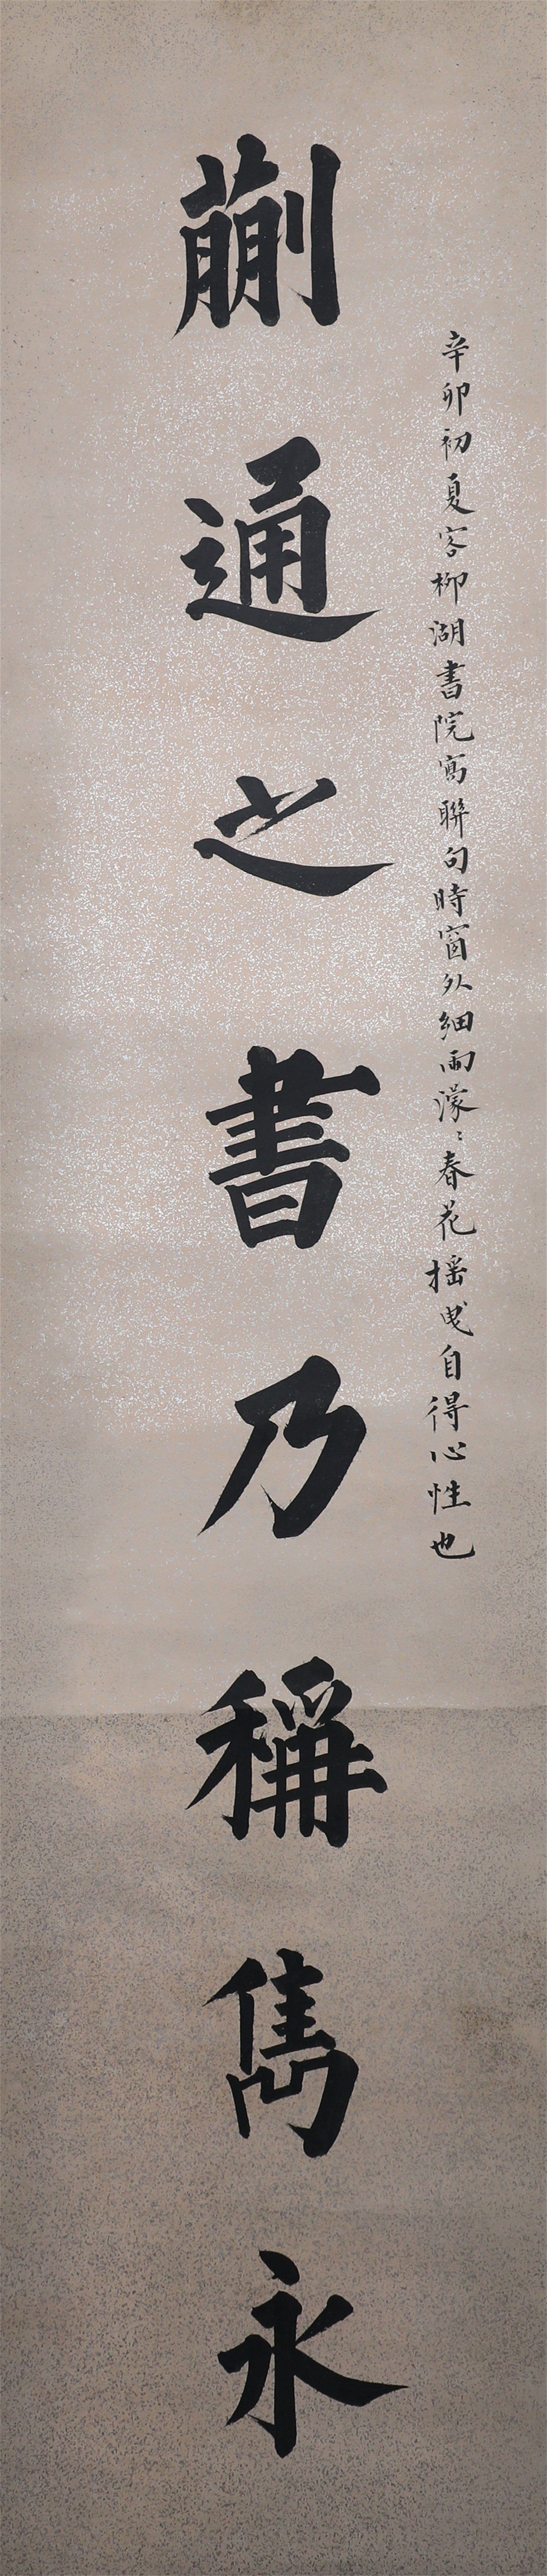 辛卯初夏客柳湖書院寫聯句時窗外細雨濛〻春花搖曳自得心性也
蒯通之書乃稱雋永